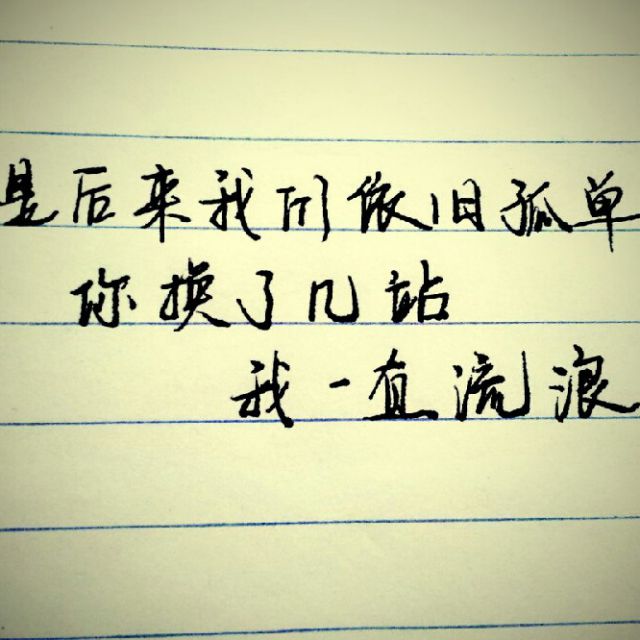 是后来我们依旧孤单
你换了几站
我一直流浪